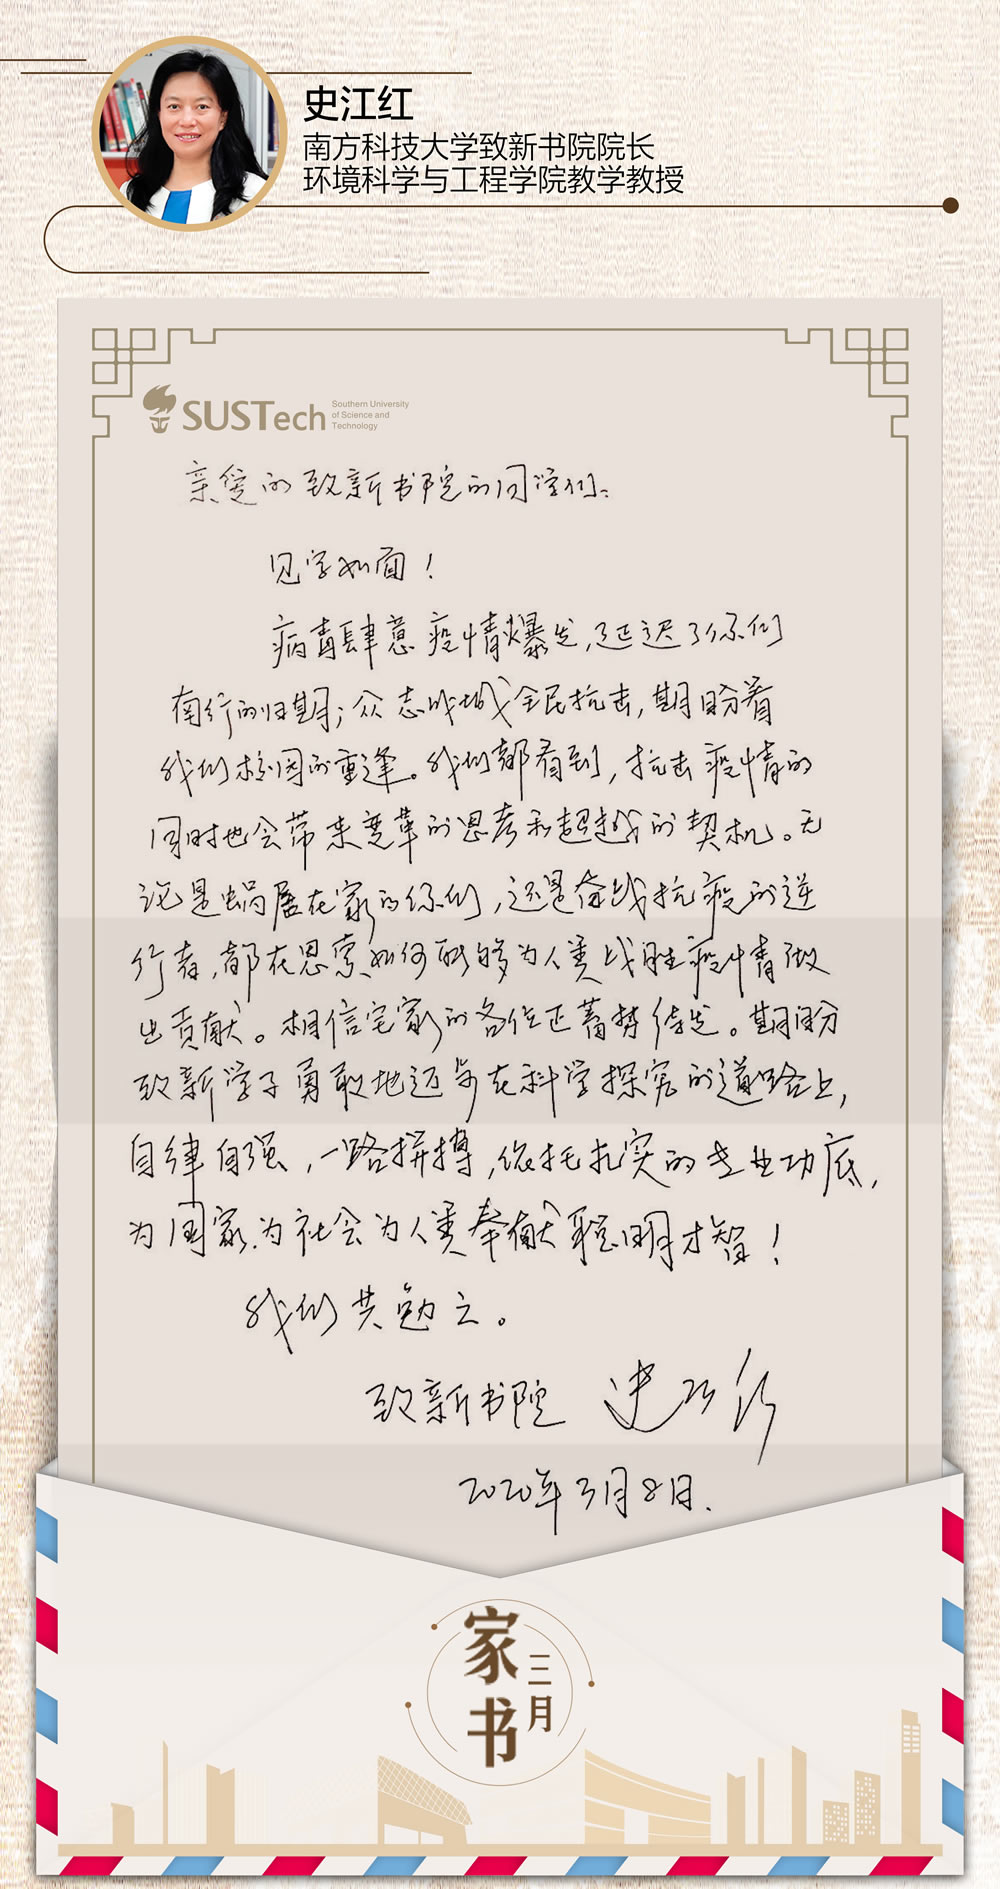 史江红
南方科技大学致新书院院长
环境科学与工程学院教学教授
SUSTech
Southern University
of Science and
Technology
亲爱的致新书院的同学们：
见字如面！
病毒肆意疫情爆发，延迟了你们
南行的归期；众志成城全民抗击，期盼着
我们校园的重逢。我们都看到，抗击疫情的
同时也会带来变革的思考和超越的契机。无
论是蜗居在家的你们，还是奋战抗疫的逆
行者，都在思索如何能够为人类战胜疫情做
出贡献。相信宅家的各位正蓄势待发。期盼
致新学子勇敢地迈步在科学探究的道路上，
自律自强，一路拼搏，依托扎实的专业功底，
为国家为社会为人类奉献聪明才智！
我们共勉之。
致新书院 史江红
2020年3月8日.
家书
三月